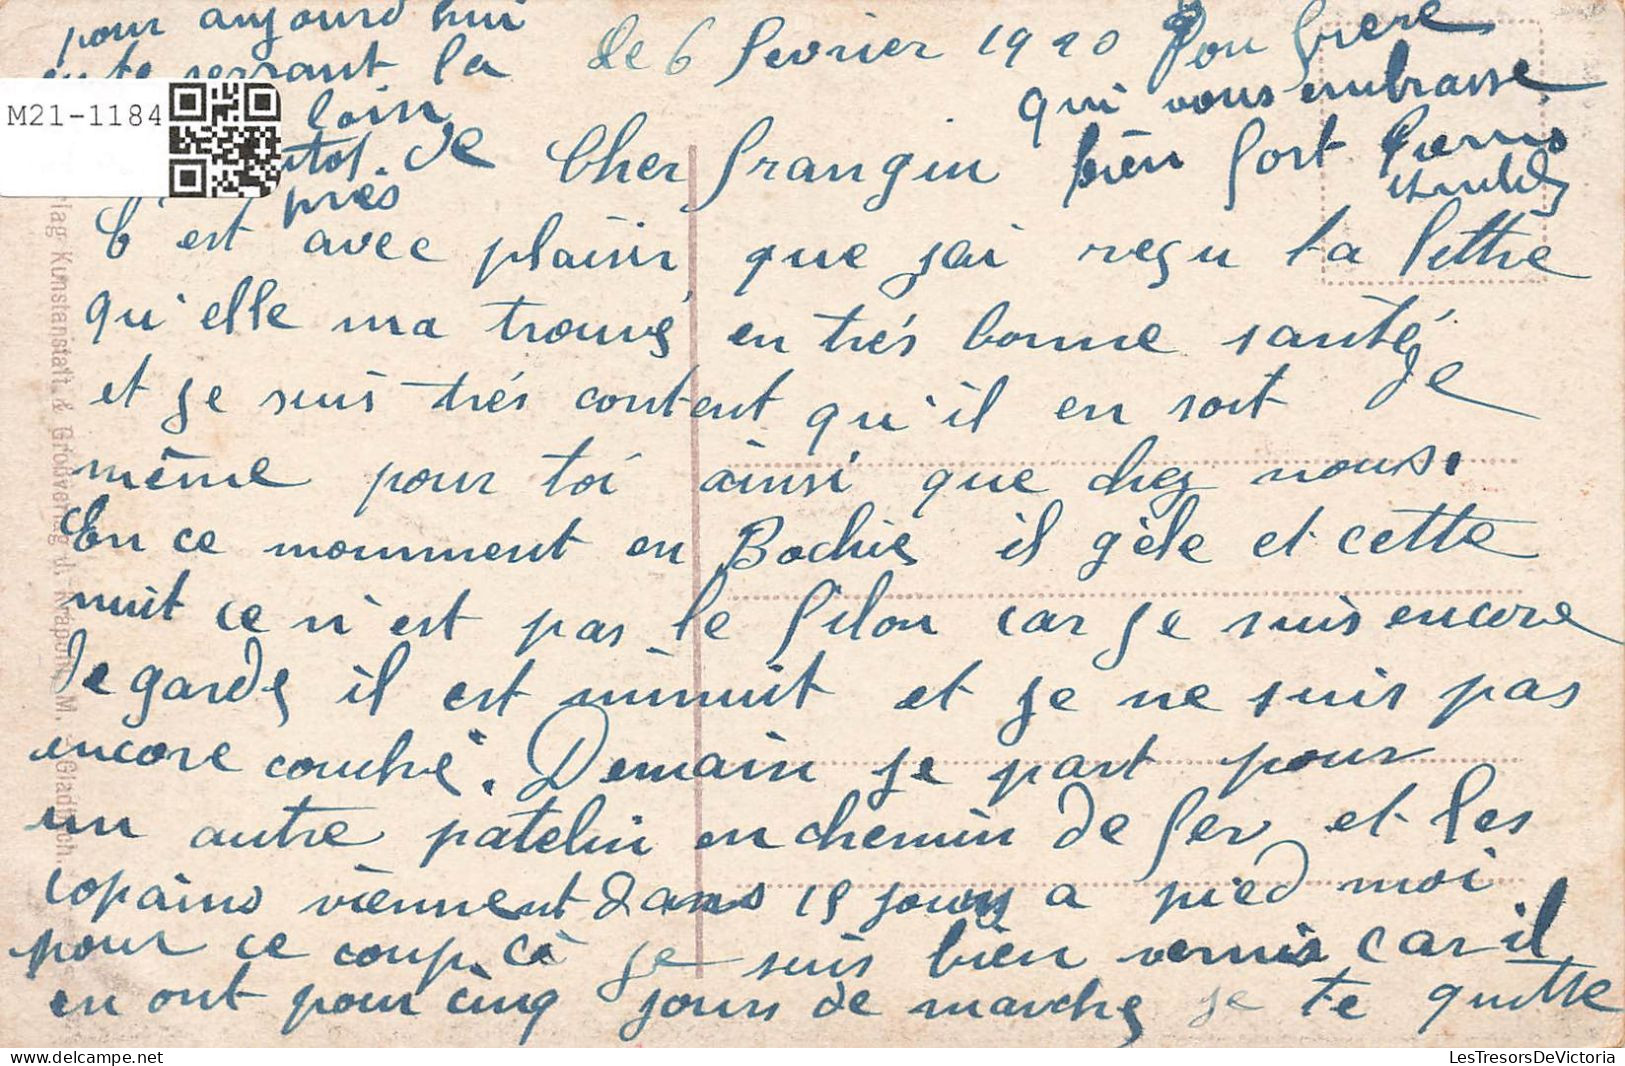 Le 6 fevrier 1920
Cher frangin
C'est avec plaisir que jai reçu ta lettre
qu'elle ma trouvé en trés bonne santé
et je suis trés content qu'il en soit de
même pour toi ainsi que chez nous.
En ce momment en Bochie il gèle et cette
nuit ce n'est pas le filon car je suis encore
de garde il est minuit et je ne suis pas
encore couché. Demain je part pour
un autre patelin en chemin de fer et les
copains viennent dans 15 jours a pied moi
pour ce coup çà je suis bien vernis car il
en ont pour cinq jours de marche je te quitte
pour aujourd'hui
en te serrant la
loin
de
près
Ton frere
qui vous embrasse
bien fort
M21-1184
Kunstanstalt & Großverlag
LesTresorsDeVictoria